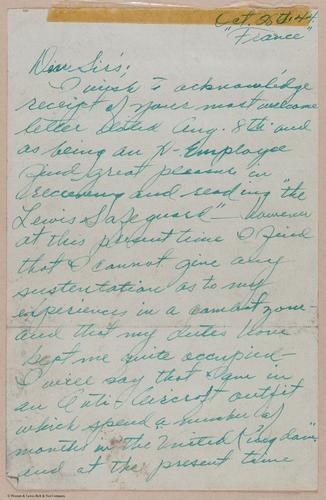 Oct. 28th 44
"France"
Dear Sir's;
I wish to acknowledge
receipt of your most welcome
letter dated Aug. 8th and
as being an X-Employee
find great pleasure in
receiving and reading "the
Lewis Safeguard" - however
at this present time I find
that I cannot give any
sustentation as to my
experiences in a combat zone -
and that my duties have
kept me quite occupied -
I will say that I am in
an Anti-Aircraft outfit
which spend a number of
months in the "United Kingdom"
and at the present time
© Wistariahurst